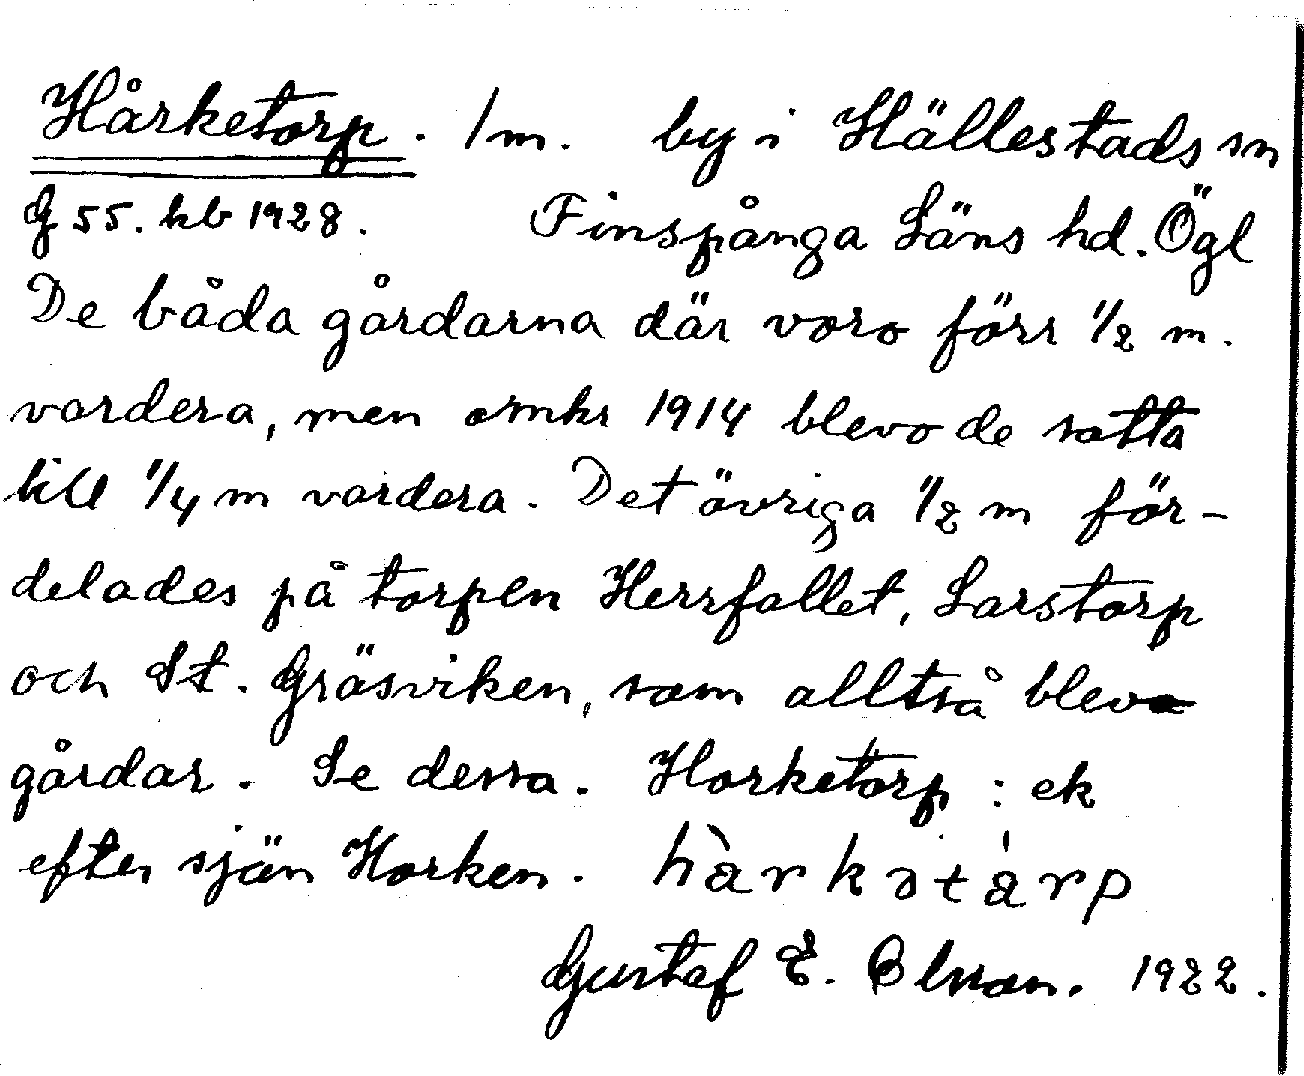 Hårketorp. 1 m. by i Hällestads sn
G 55. kb 1928. Finspånga Läns hd. Ögl
De båda gårdarna där voro förr 1/2 m.
vardera, men omkr 1914 blevo de satta
till 1/4 m vardera. Det övriga 1/2 m för-
delades på torpen Herrfallet, Larstorp
och St. Gräsviken, som alltså blev
gårdar. Se dessa. Horketorp: ek
efter sjön Horken.
Gustaf E. Olsson. 1922.